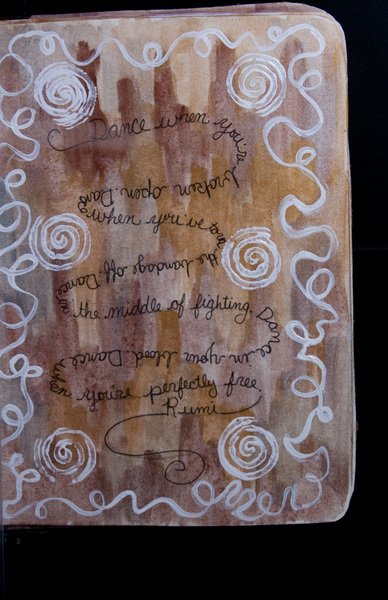 Dance when you're
broken open. Dance
when you've torn
the bandage off. Dance in
the middle of fighting. Dance
in your blood. Dance
when you're perfectly free
Rumi